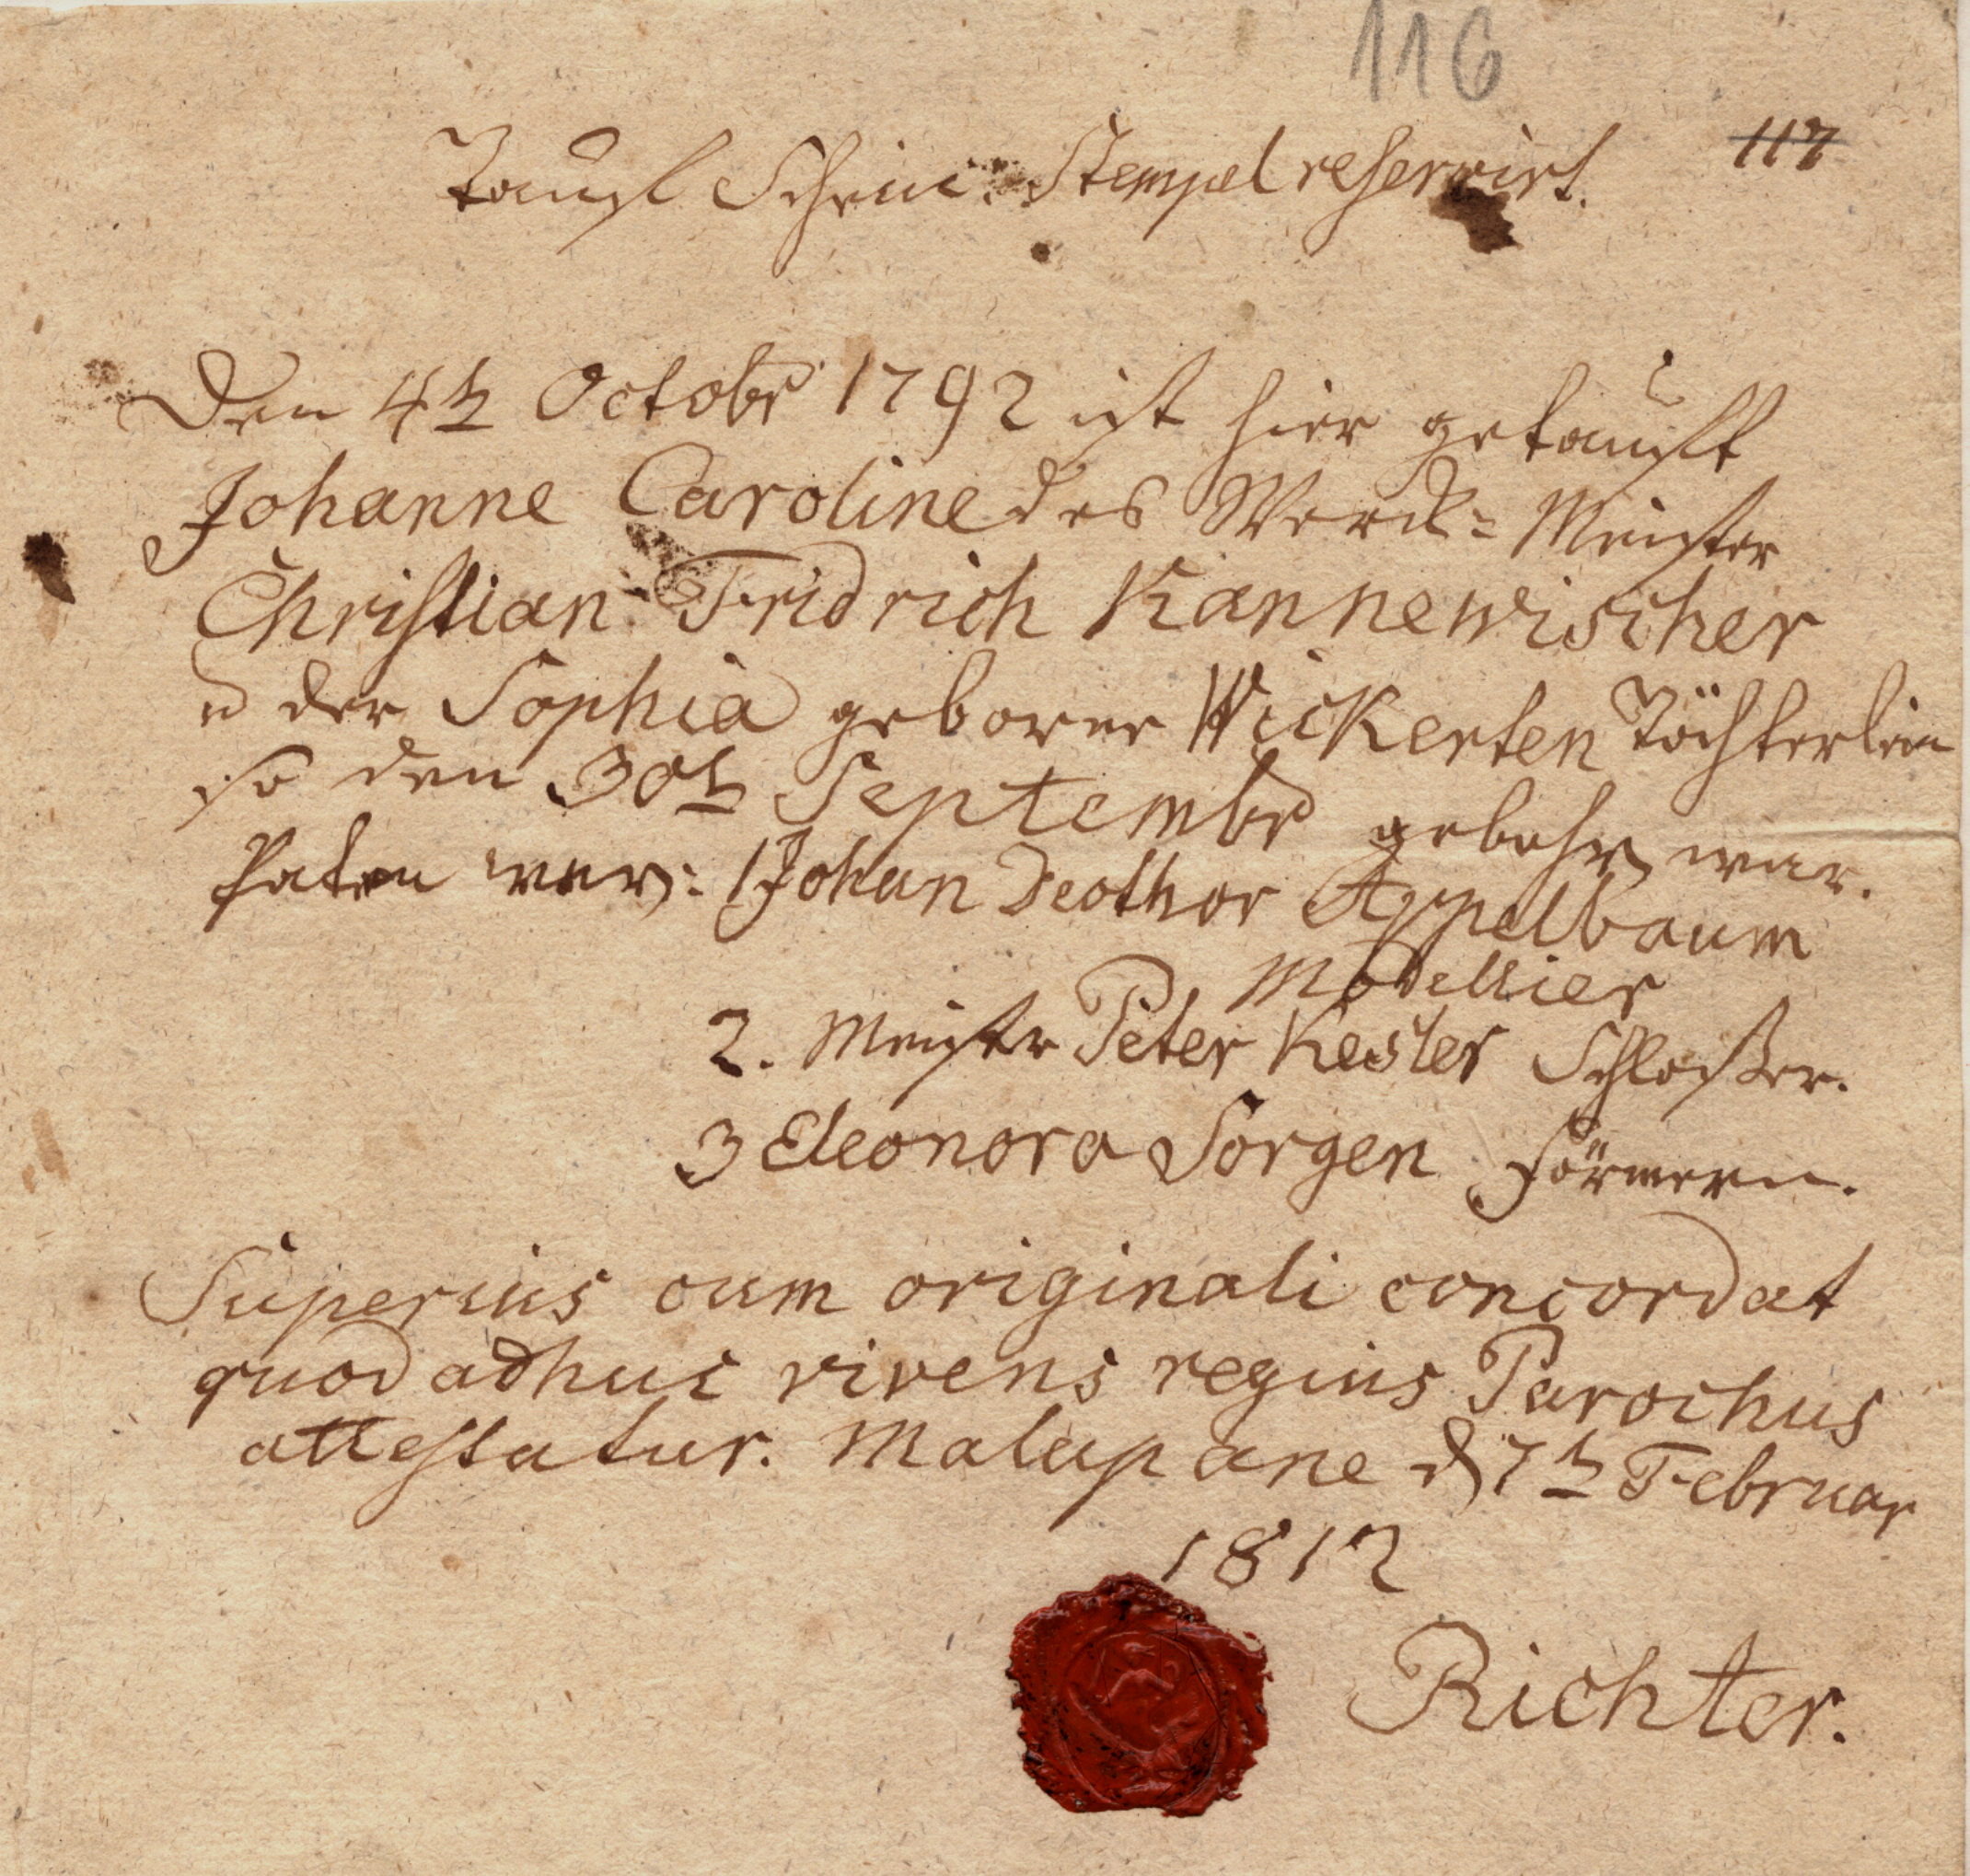 116
117
Tauf Schein. Stempel reservirt.
Den 4t October 1792 ist hier getauft
Johanne Caroline des Werck= Meister
Christian Fridrich Kannewischer
u der Sophia geborne Wickerten Töchterlein
so den 30t Septembr gebohrn war.
Paten war: 1 Johan Deothor Appelbaum
Modellier
2. Meister Peter Kesler Schloßer.
3 Eleonora Sorgen Förmern.
Superius cum originali concordat
quod adhuc vivens regius Parochus
attestatur. Malapane d 7t Februar
1812
Richter.